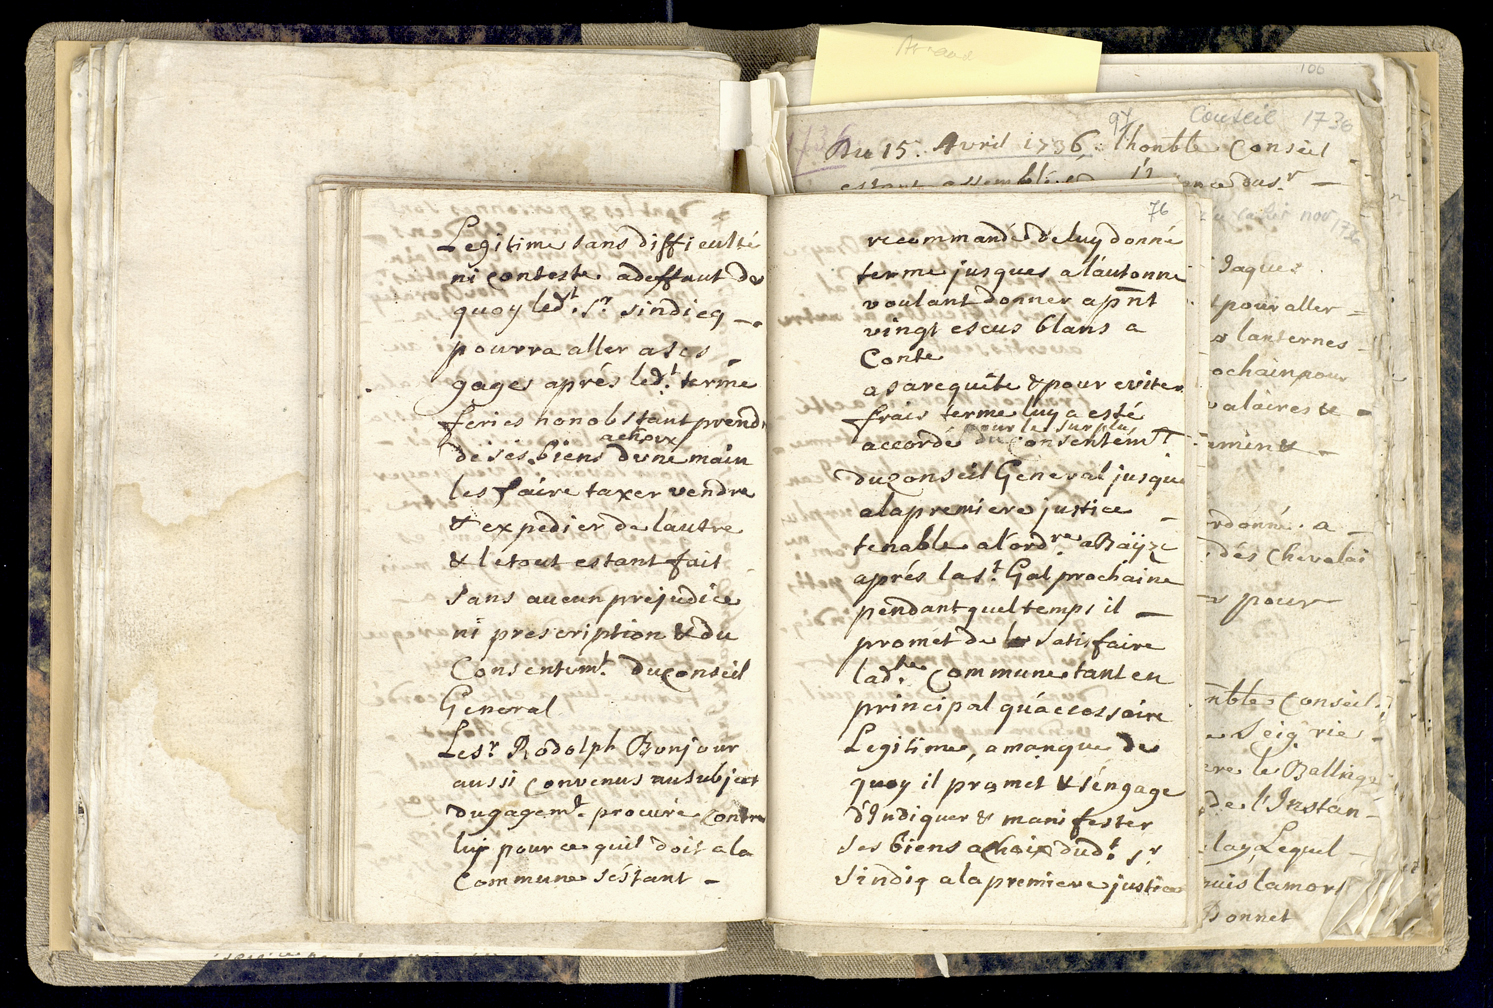 Legitime sans difficulté
ni conteste. adeffaut de
quoy led.t S.r sindicq
pourra aller a ses
gages aprés led.t terme
feries nonobstant prendre
a choix
de sés biens dune main
les faire taxer vendre
& expedier de lautre
& le tout estant fait
sans aucun prejudice
ni prescription & du
Consentem.t du Conseil
General
Le S.r Rodolph Bonjour
aussi convenus au subject
du gagem.t procuré contre
luy pour ce quil doit a la
Commune séstant
76
recommandé de luy donné
terme jusques a láutonne
voulant donner a pñt
vingt escus blans a
Conte
a sa requête & pour eviter
frais terme luy a esté
pour le surplus
accordé du consentem.t
du Conseil General jusque
a la premiere justice
tenable a l'ord.re a Baÿze
aprés la S.t Gal prochaine
pendant quel temps il
promét de satisfaire
lad.te Commune tant en
principal qu'áccessoire
Legitime, a manque de
quoy il promet & s'éngage
d'Indiquer & manifester
ses biens a choix dud.t S.r
Sindiq a la premiere justice
106
97
Conseil 1736
Du 15. Avril 1736. l'honble Conseil
estant assemblé
Jaques
pour aller
lanternes
ochain pour
ordonné. a
dés Chevalai
pour
nble Conseil
Seig.rie
le Ballings
de l'Instan
Lequel
puis la mort
Bonnet